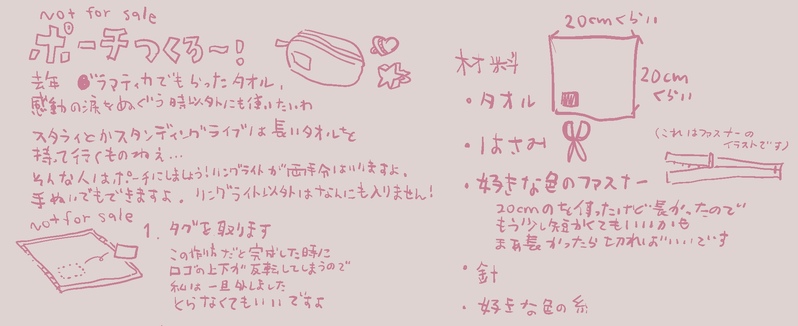 not for sale
ポーチつくる〜!
去年 グラマティカでもらったタオル、
感動の涙をぬぐう時以外にも使いたいわ
スタライとかスタンディングライブは長いタオルを
持って行くものねぇ…
そんな人はポーチにしましょう!リングライトが両手分はいりますよ。
手ぬいでもできますよ。リングライト以外はなんにも入りません!
not for sale
1. タグを取ります
この作り方だと完成した時に
ロゴの上下が反転してしまうので
私は一旦外しました
とらなくてもいいですよ
20cmくらい
20cm
くらい
材料
・タオル
・はさみ
(これはファスナーの
イラストです)
・好きな色のファスナー
20cmのを使ったけど長かったので
もう少し短かくてもいいかも
まぁ長かったら切ればいいです
・針
・好きな色の糸